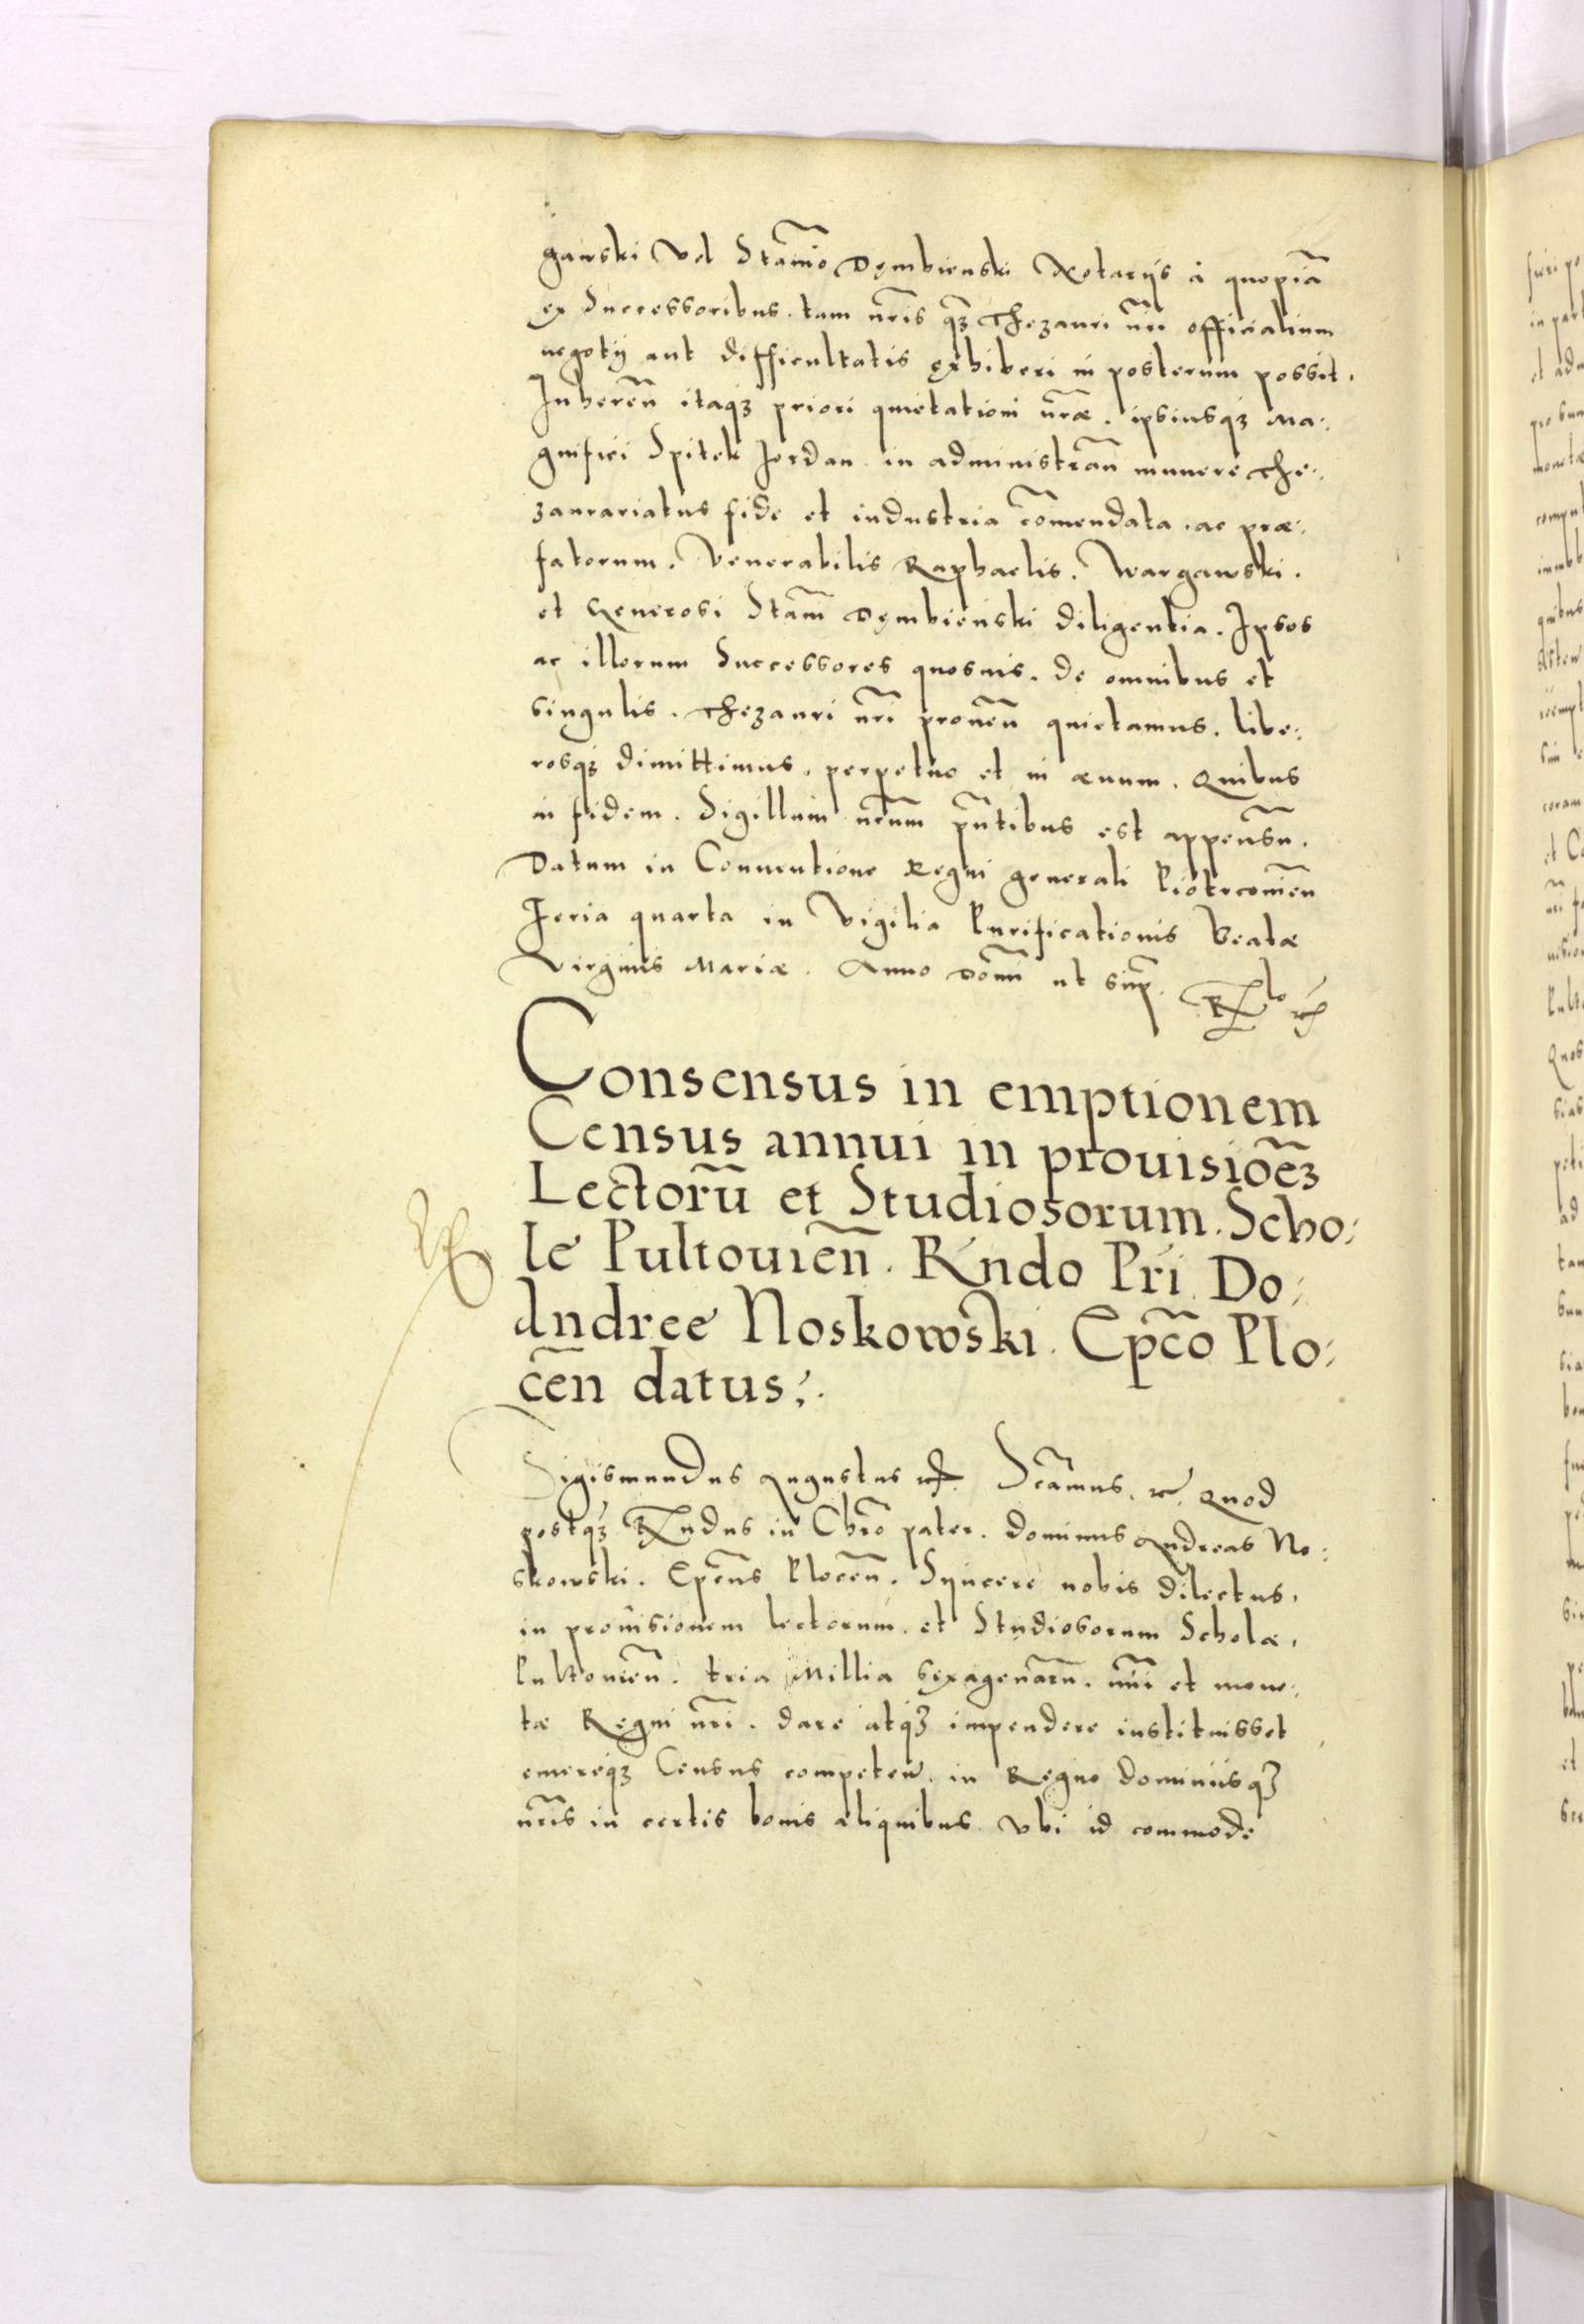 gawski Vel Stanīo Dęmbienski Notarijs à quopiā
ex Successoribus. tam nr̄is qꝫ Thezauri nr̄i officialium
negotij aut difficultatis exhiberi in posterum possit.
Inheren̄ itaqꝫ priori quietationi nr̄æ. ipsiusqꝫ Ma:
gnifici Spitek Jordan in administran̄ munere The:
zaurariatus fide et industria cōmendata. ac præ:
fatorum. Venerabilis Raphaelis. Wargawski.
et Generosi Stanī Dęmbienski diligentia. Ipsos
ac illorum Successores quosuis. de omnibus et
singulis. Thezauri nr̄i prouen̄ quietamus. libe:
rosqꝫ dimittimus. perpetuo et in æuum. Quibus
in fidem. Sigillum nr̄um pn̄tibus est appensū.
Datum in Conuentione Regni generali Piotrcouien̄
Feria quarta in Vigilia Purificationis Beatæ
Virginis Mariæ. Anno Domī ut sup̄.
Consensus in emptionem
Census annui in prouisiōeꝫ
Lectorū et Studiosorum. Scho:
le Pultouien̄. Rn̄do Pr̄i. Do:
Andree Noskowski. Epc̄o Plo:
cēn datus:.
Sigismundus Augustus etc. Scāmus. etc. Quod
postqꝫ Rn̄dus in Chrō pater. dominus Andreas No:
skowski. Epc̄us Plocen̄. Syncere nobis dilectus.
in prouisionem lectorum. et Studiosorum Scholæ.
Pultouien̄. tria Millia sexagenarū. nūi et mone:
tæ Regni nr̄i. dare atqꝫ impendere instituisset
emereqꝫ Census competen̄. in Regno dominiisqꝫ
nr̄is in certis bonis aliquibus. vbi id commode